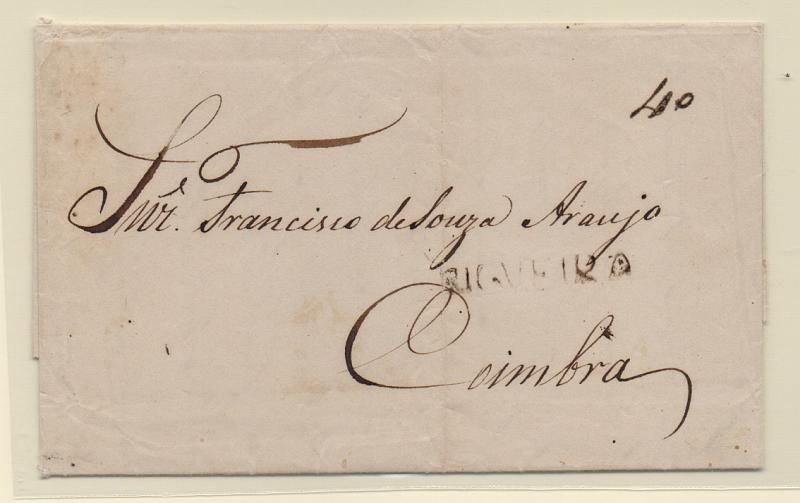 40
Snr. Francisco de Souza Araujo
FIGUEIRA
Coimbra